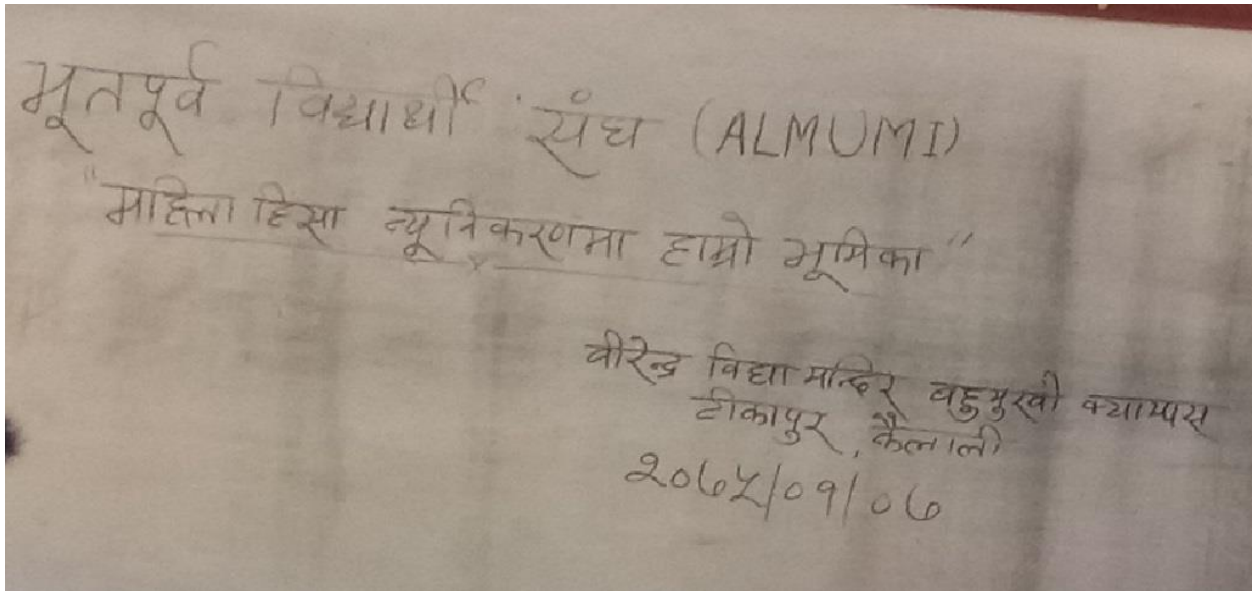 भूतपूर्व विद्यार्थी संघ (ALMUMI)
"महिला हिंसा न्यूनिकरणमा हाम्रो भूमिका"
वीरेन्द्र विद्या मन्दिर वहुमुखी क्याम्पस
टीकापुर, कैलाली
२०७५/०१/०७